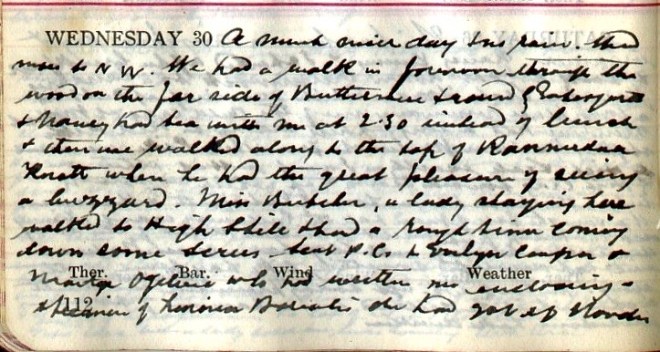 WEDNESDAY 30 A much nicer day & no rain. Wind
more to N W. We had a walk in forenoon through the
wood on the far side of Buttermere & round
& had tea with me at 2.30 instead of lunch
& then we walked along to the top of Rannerdale
Knott when he had the great pleasure of seeing
a buzzard. Miss Butcher, a lady staying here
walked to High Stile & had a rough time coming
down some screes Sent P.Cs to Evelyn &
Ther. Bar. Wind Weather
who had written me enclosing
112 specimen of Linnaea Borealis she had got up